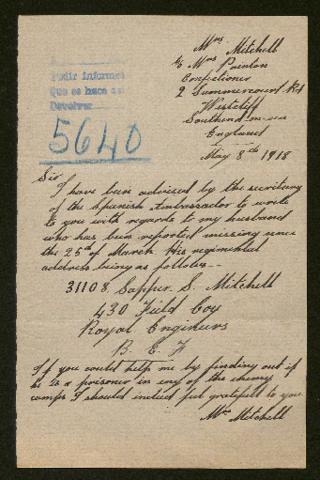 Mrs Mitchell
c/o Mrs Painton
Confectioner
2 Summercourt Rd
Westcliff
Southend-on-sea
England
May 8th 1918
Pedir informe
Que se hace
Devolver
5640
Sir
I have been adviced by the secretary
of the Spanish Ambassador to write
to you with regards to my husband
who has been reported missing since
the 25th of March. His regimental
address being as follows—
31108. Sapper. S. Mitchell
430 Field Coy
Royal Engineers
B. E. F
If you could help me by finding out if
he is a prisoner in any of the enemy
camps I should indeed feel gratefull to you
Mrs Mitchell